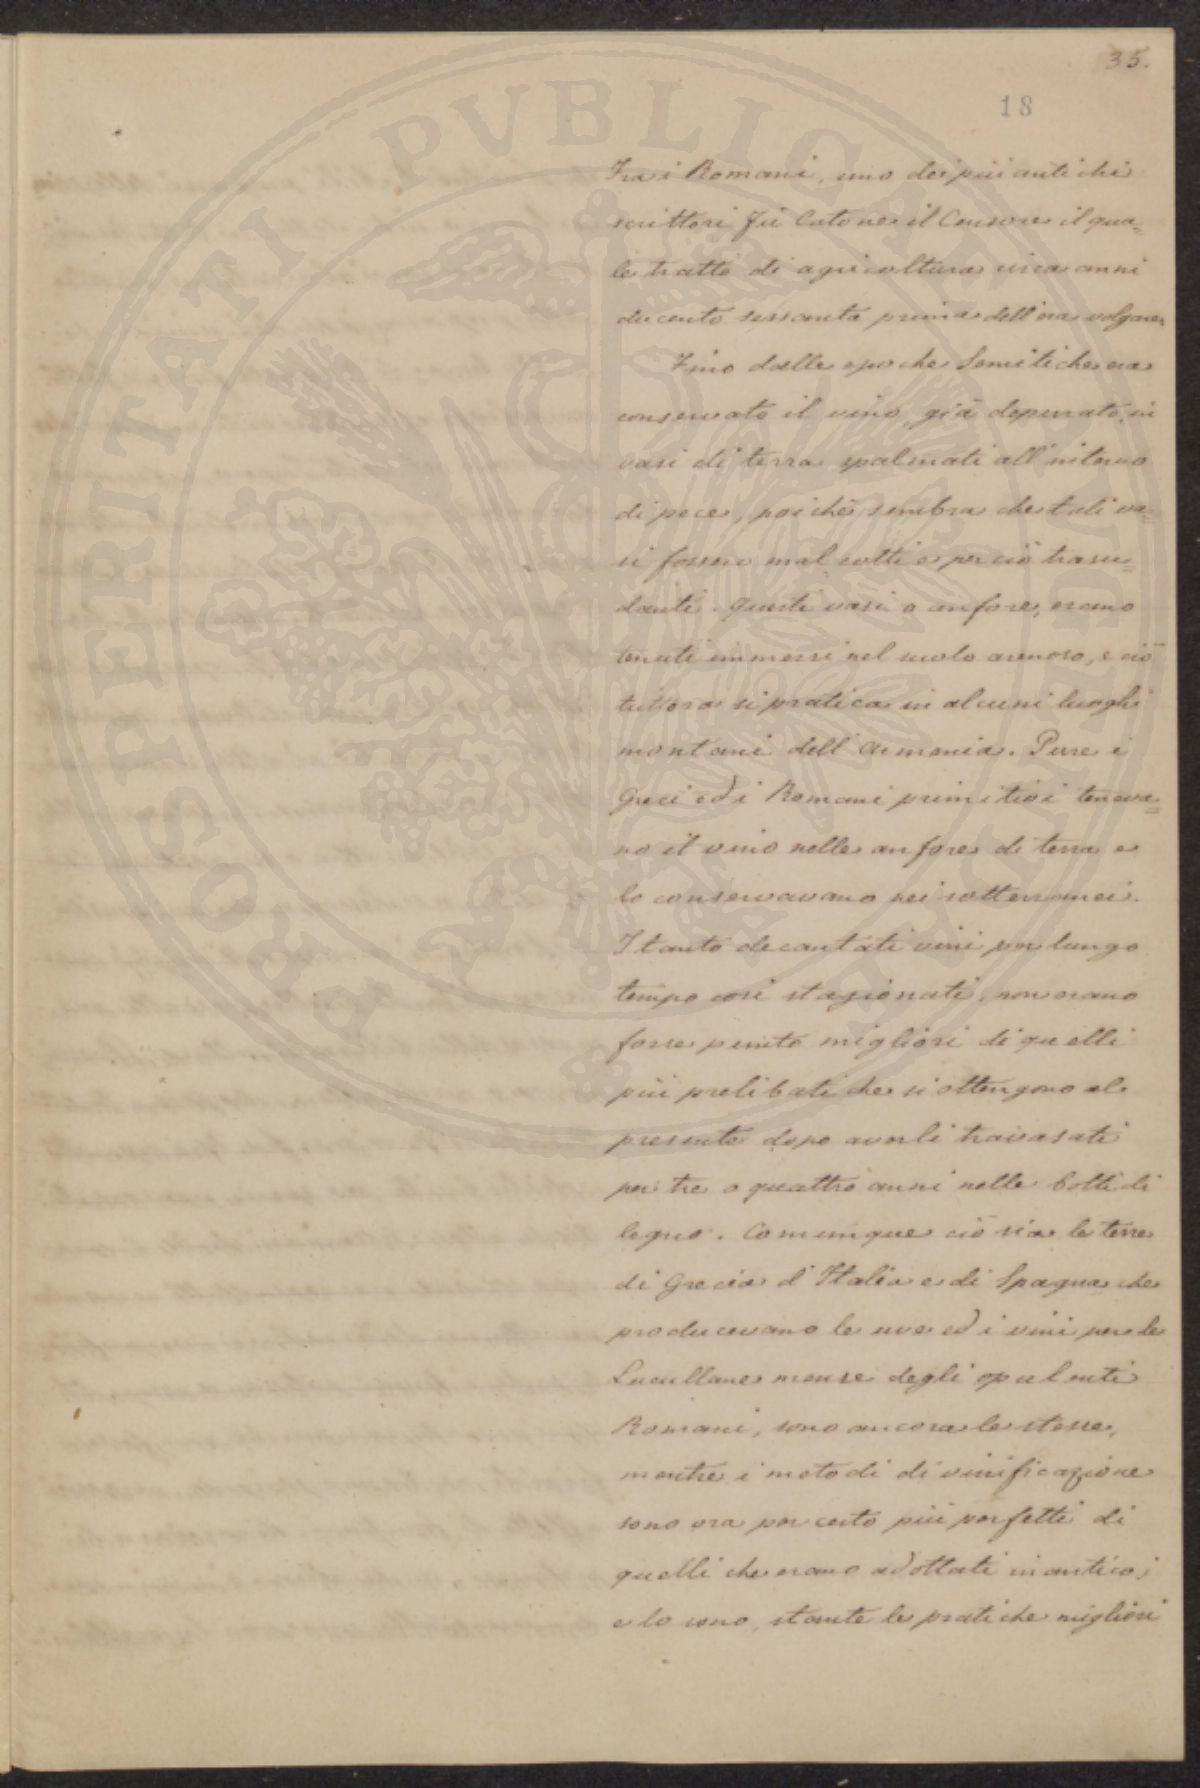 35.
18
PVBLICAE
PROSPERITATI
Fra i Romani, uno dei più antichi
scrittori fù Catone il Censore il qua=
le trattò di agricoltura circa anni
ducento sessanta prima dell'era volgare.
Fino dalle epoche Semitiche era
conservato il vino, già depurato, in
vasi di terra spalmati all'interno
di pece, poichè sembra che tali va=
si fossero mal cotti e perciò trasu=
danti. Questi vasi o anfore, erano
tenuti immersi nel suolo arenoso, e ciò
tuttora si pratica in alcuni luoghi
montani dell'Armenia. Pure i
Greci ed i Romani primitivi teneva=
no il vino nelle anfore di terra e
lo conservavano nei sotterranei.
I tanto decantati vini per lungo
tempo così stagionati, non erano
forse punto migliori di quelli
più prelibati che si ottengono al
presente dopo averli travasati
per tre o quattro anni nelle botti di
legno. Comunque ciò sia le terre
di Grecia d'Italia e di Spagna che
producevano le uve ed i vini per le
Lucullane mense degli opulenti
Romani, sono ancora le stesse,
mentre i metodi di vinificazione
sono ora per certo più perfetti di
quelli che erano adottati in antico;
e lo sono, stante le pratiche migliori